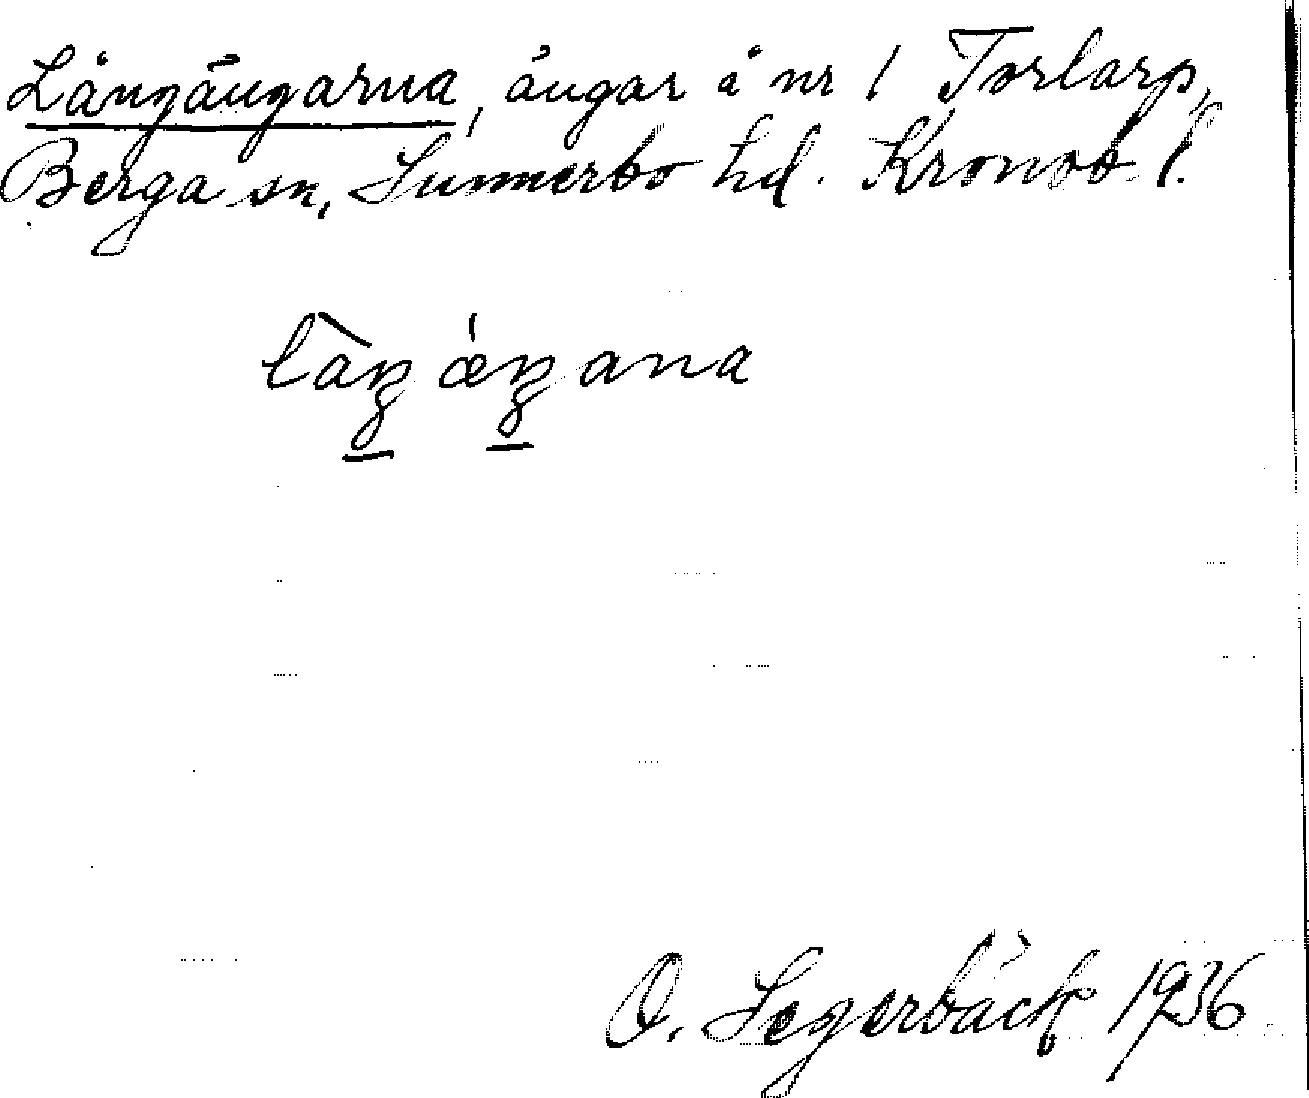 Långängarna, ängar å nr 1 Torlarp,
Berga sn, Sunnerbo hd. Kronob. l.
låŋ æŋ ana
O. Segerbäck 1936